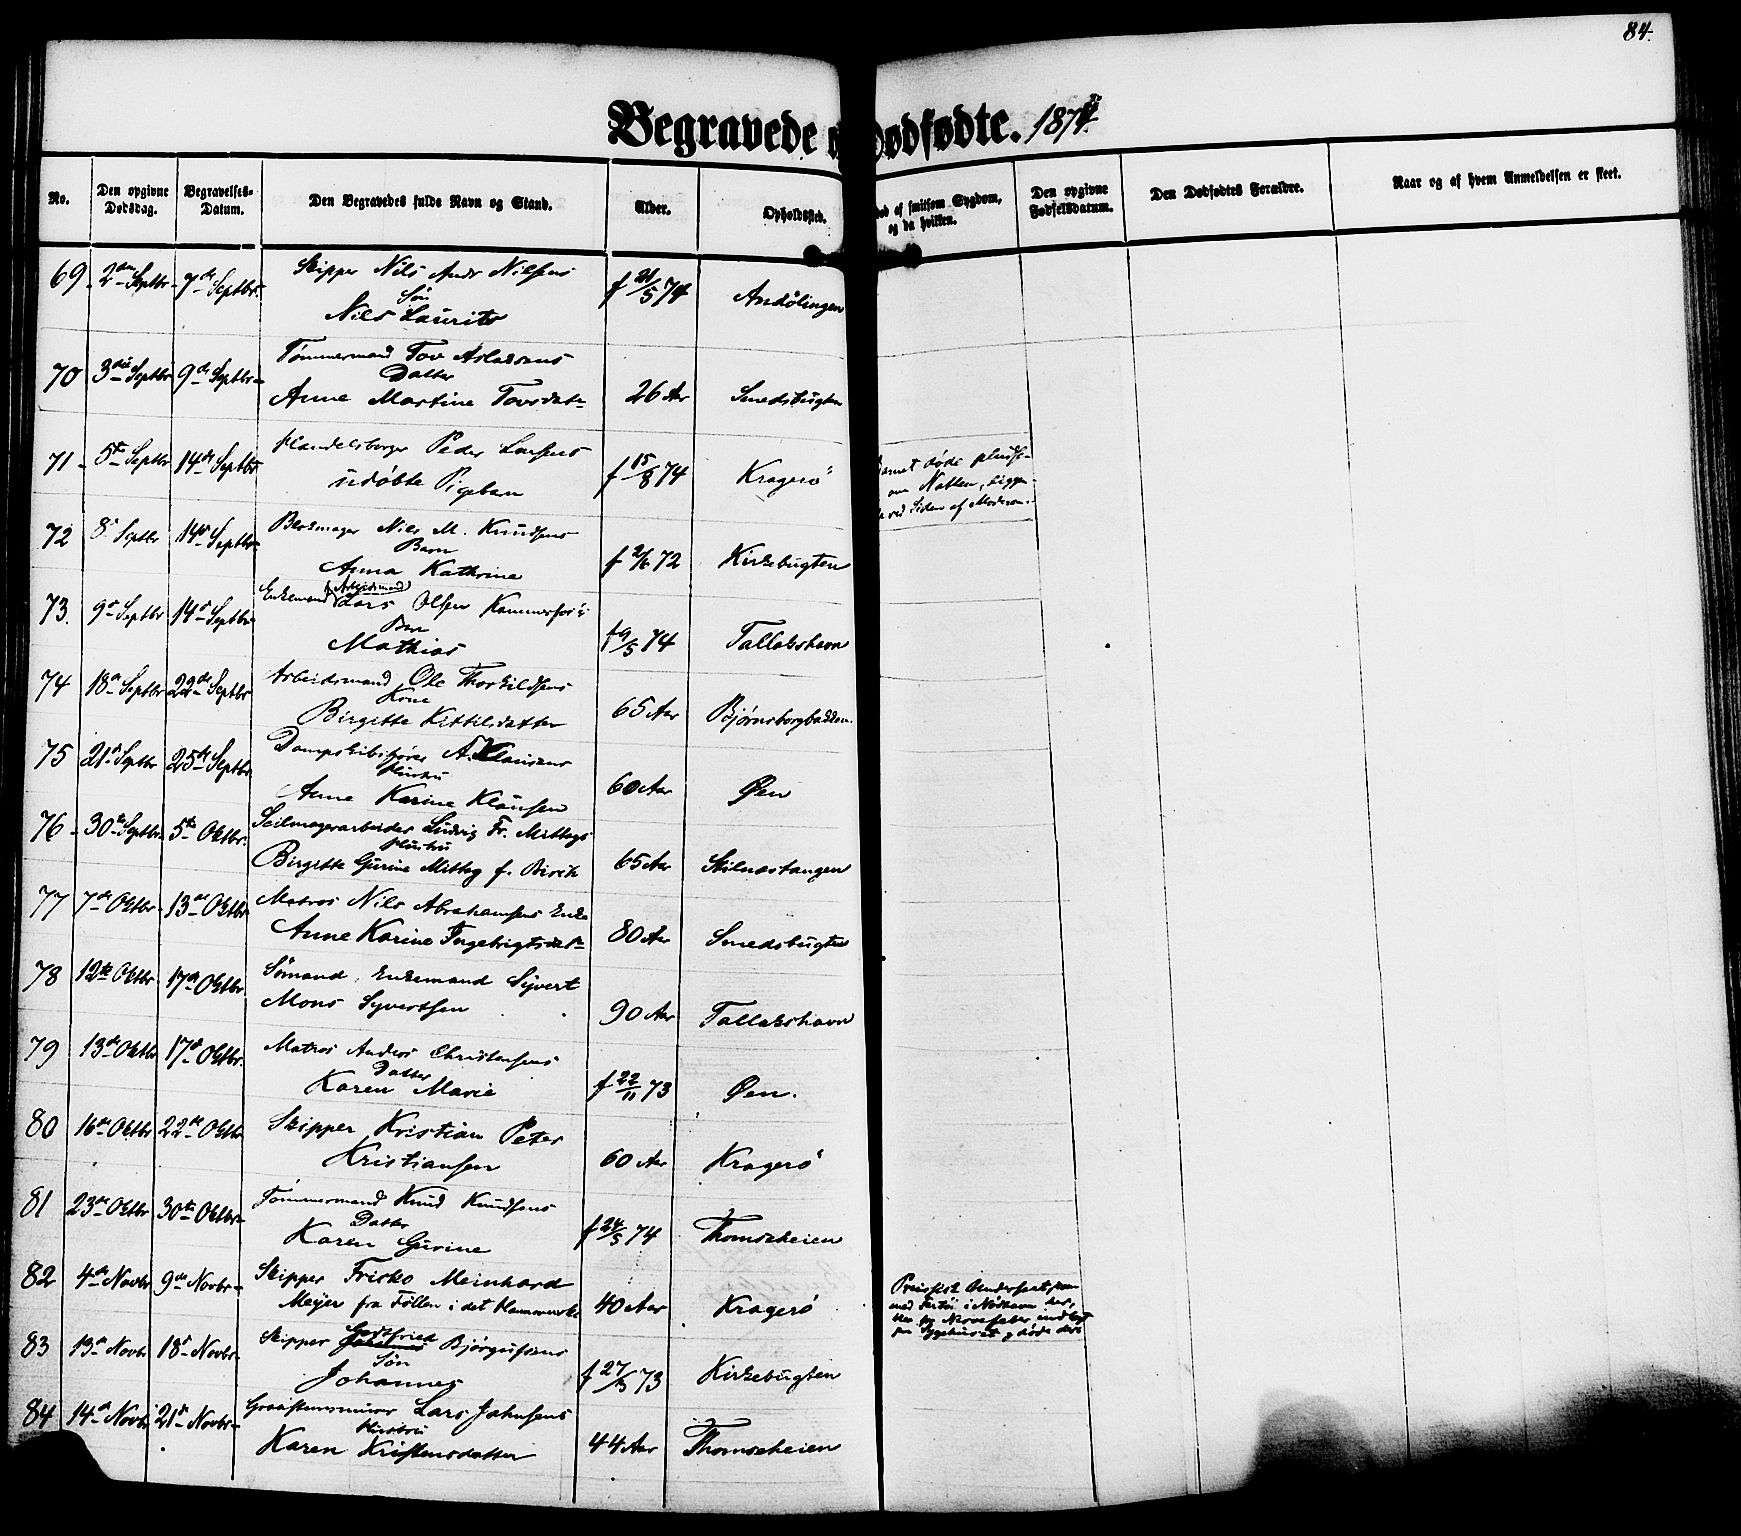 84.
Begravede dødfødte. 1874.
No.
Den opgivne Dødsdag.
Begravelses-Datum.
Den Begravedes fulde Navn og Stand.
Alder.
Opholdssted.
død af smitsom Sygdom, og da hvilken.
Den opgivne Fødselsdatum.
Den Dødfødtes Forældre.
Naar og af hvem Anmeldelsen er skeet.
69. 2den Septbr. 7de Septbr. Skipper Nils Andr Nilsens f 21/5 74 Andølingen
Søn
Nils Laurits
70 3die Septbr 9de Septbr. Tømmermand Tov Aslaksens 26 Aar Smedsbugten
Datter
Anne Martine Tovsdatr
71. 5te Septbr 14de Septbr Handelsborger Peder Larsens f 15/8 74 Kragerö
udøbte Pigebarn
Barnet døde pludse-
om Natten, liggen-
de ved Siden af Moderen.
72 8de Septbr 14de Septbr Blokmager Nils M. Knudsens f 2/6 72 Kirkebugten
Barn
Anna Kathrine
73. 9de Septbr 14de Septbr. Enkemand Arbeidsmand Lars Olsen f 9/5 74 Tallakshavn
Barn
Mathias
74 18de Septbr 22de Septbr Arbeidsmand Ole Thorkildsens 65 Aar Bjørnsborgbakken.
Kone
Birgitte Kittilsdatter
75 21de Septbr 25de Septbr. Dampskibsfører A. Klausens 60 Aar Øen
Hustru
Anne Karine Klausen
76. 30te Septbr. 5te Oktbr. Seilmagerarbeider Ludvig Fr. Mittegs 65 Aar Stilnestangen
Hustru
Birgitte Gurine Mitteg f. Birch
77 7de Oktbr. 13de Oktbr. Matros Nils Abrahamsens Enke 80 Aar Smedsbugten
Anne Karine Ingebrigtsdatr
78 12te Oktbr. 17de Oktbr. Sømand, Enkemand Syvert 90 Aar Tallakshavn
Mons Syvertsen
79 13de Oktbr 17de Oktbr. Matros Andreas Christensens f 22/11 73 Øen.
Datter
Karen Marie
80 16de Oktbr 22de Oktbr Skipper Kristian Peter 60 Aar Kragerö
Kristiansen
81 23de Oktbr 30te Oktbr. Tømmermand Knud Knudsens f 24/5 74 Thomseheien
Datter
Karen Gurine
82 4de Novbr 9de Novbr. Skipper Fricko Meinhard 40 Aar Kragerö
Meijer fra Föllen i det
Preussisk Undersaat, kom
med Fartøi i Nødhavn her,
blev syg Nervefeber, indlagt
paa Sygehuset, og døde der.
83 13de Novbr 18de Novbr. Skipper Gottfried Johannes Bjørgufsens f 27/3 73 Kirkebugten
Søn
Johannes
84 14de Novbr. 21de Novbr. Graastensminør Lars Johnsens 44 Aar Thomseheien
Hustru
Karen Kristensdatter